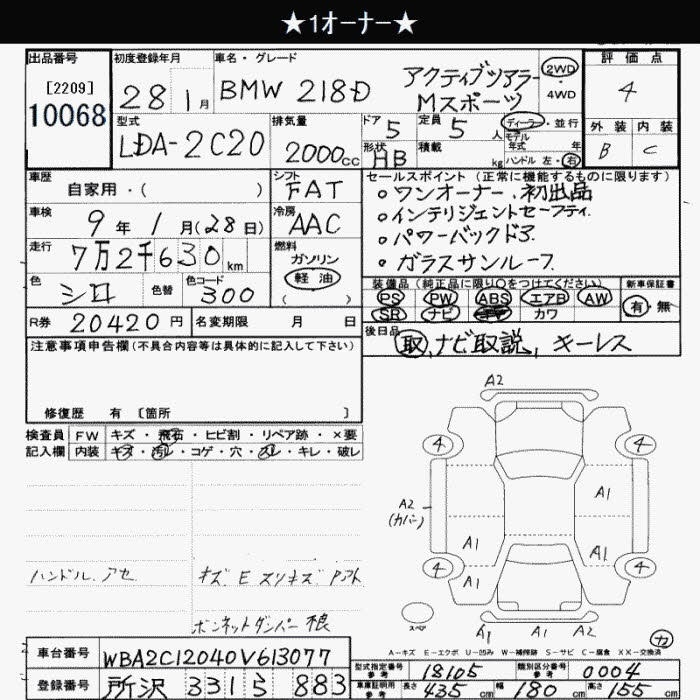 ★1オーナー★
出品番号
[2209]
10068
初度登録年月
28 1月
車名・グレード
BMW 218D アクティブツアラー
Mスポーツ
2WD
・
4WD
評価点
4
外装 内装
B C
型式
LDA-2C20
排気量
2000cc
ドア
5
定員
5人
ディーラー・並行
モデル
年式 年
形状
HB
積載
kg
ハンドル 左・右
車歴
自家用・( )
シフト
FAT
セールスポイント (正常に機能するものに限ります)
・ワンオーナー、初出品
・インテリジェントセーフティ.
・パワーバックドア
・ガラスサンルーフ
車検
9年1月(28日)
冷房
AAC
走行
7万2千630km
燃料
ガソリン
軽油
( )
色
シロ
色替
色コード
300
装備品(純正品に限り○をつけてください)
PS PW ABS エアB AW
SR ナビ カワ
新車保証書
有・無
R券 20420円
名変期限 月 日
後日品
取,ナビ取説, キーレス
注意事項申告欄(不具合内容等は具体的に記入して下さい)
修復歴 有 〔箇所 〕
検査員
記入欄
FW キズ・飛石・ヒビ割・リペア跡・×要
内装 キズ・汚レ・コゲ・穴・スレ・キレ・破レ
ハンドル.アセ
キズ E スリキズ
ボンネットダンパー
A2
4 4
A1
A2
(カバー)
A1 A1
4 4
A1
スペア
A1 A2
カ
A-キズ E-エクボ U-凹み W-補修跡 S-サビ C-腐食 XX-交換済
車台番号
WBA2C12040V613077
型式指定番号
参考
18105
類別区分番号
参考
0004
登録番号
所沢 331 ら 883
車庫証明用
参考
長さ 435cm 幅 180cm 高さ 155cm